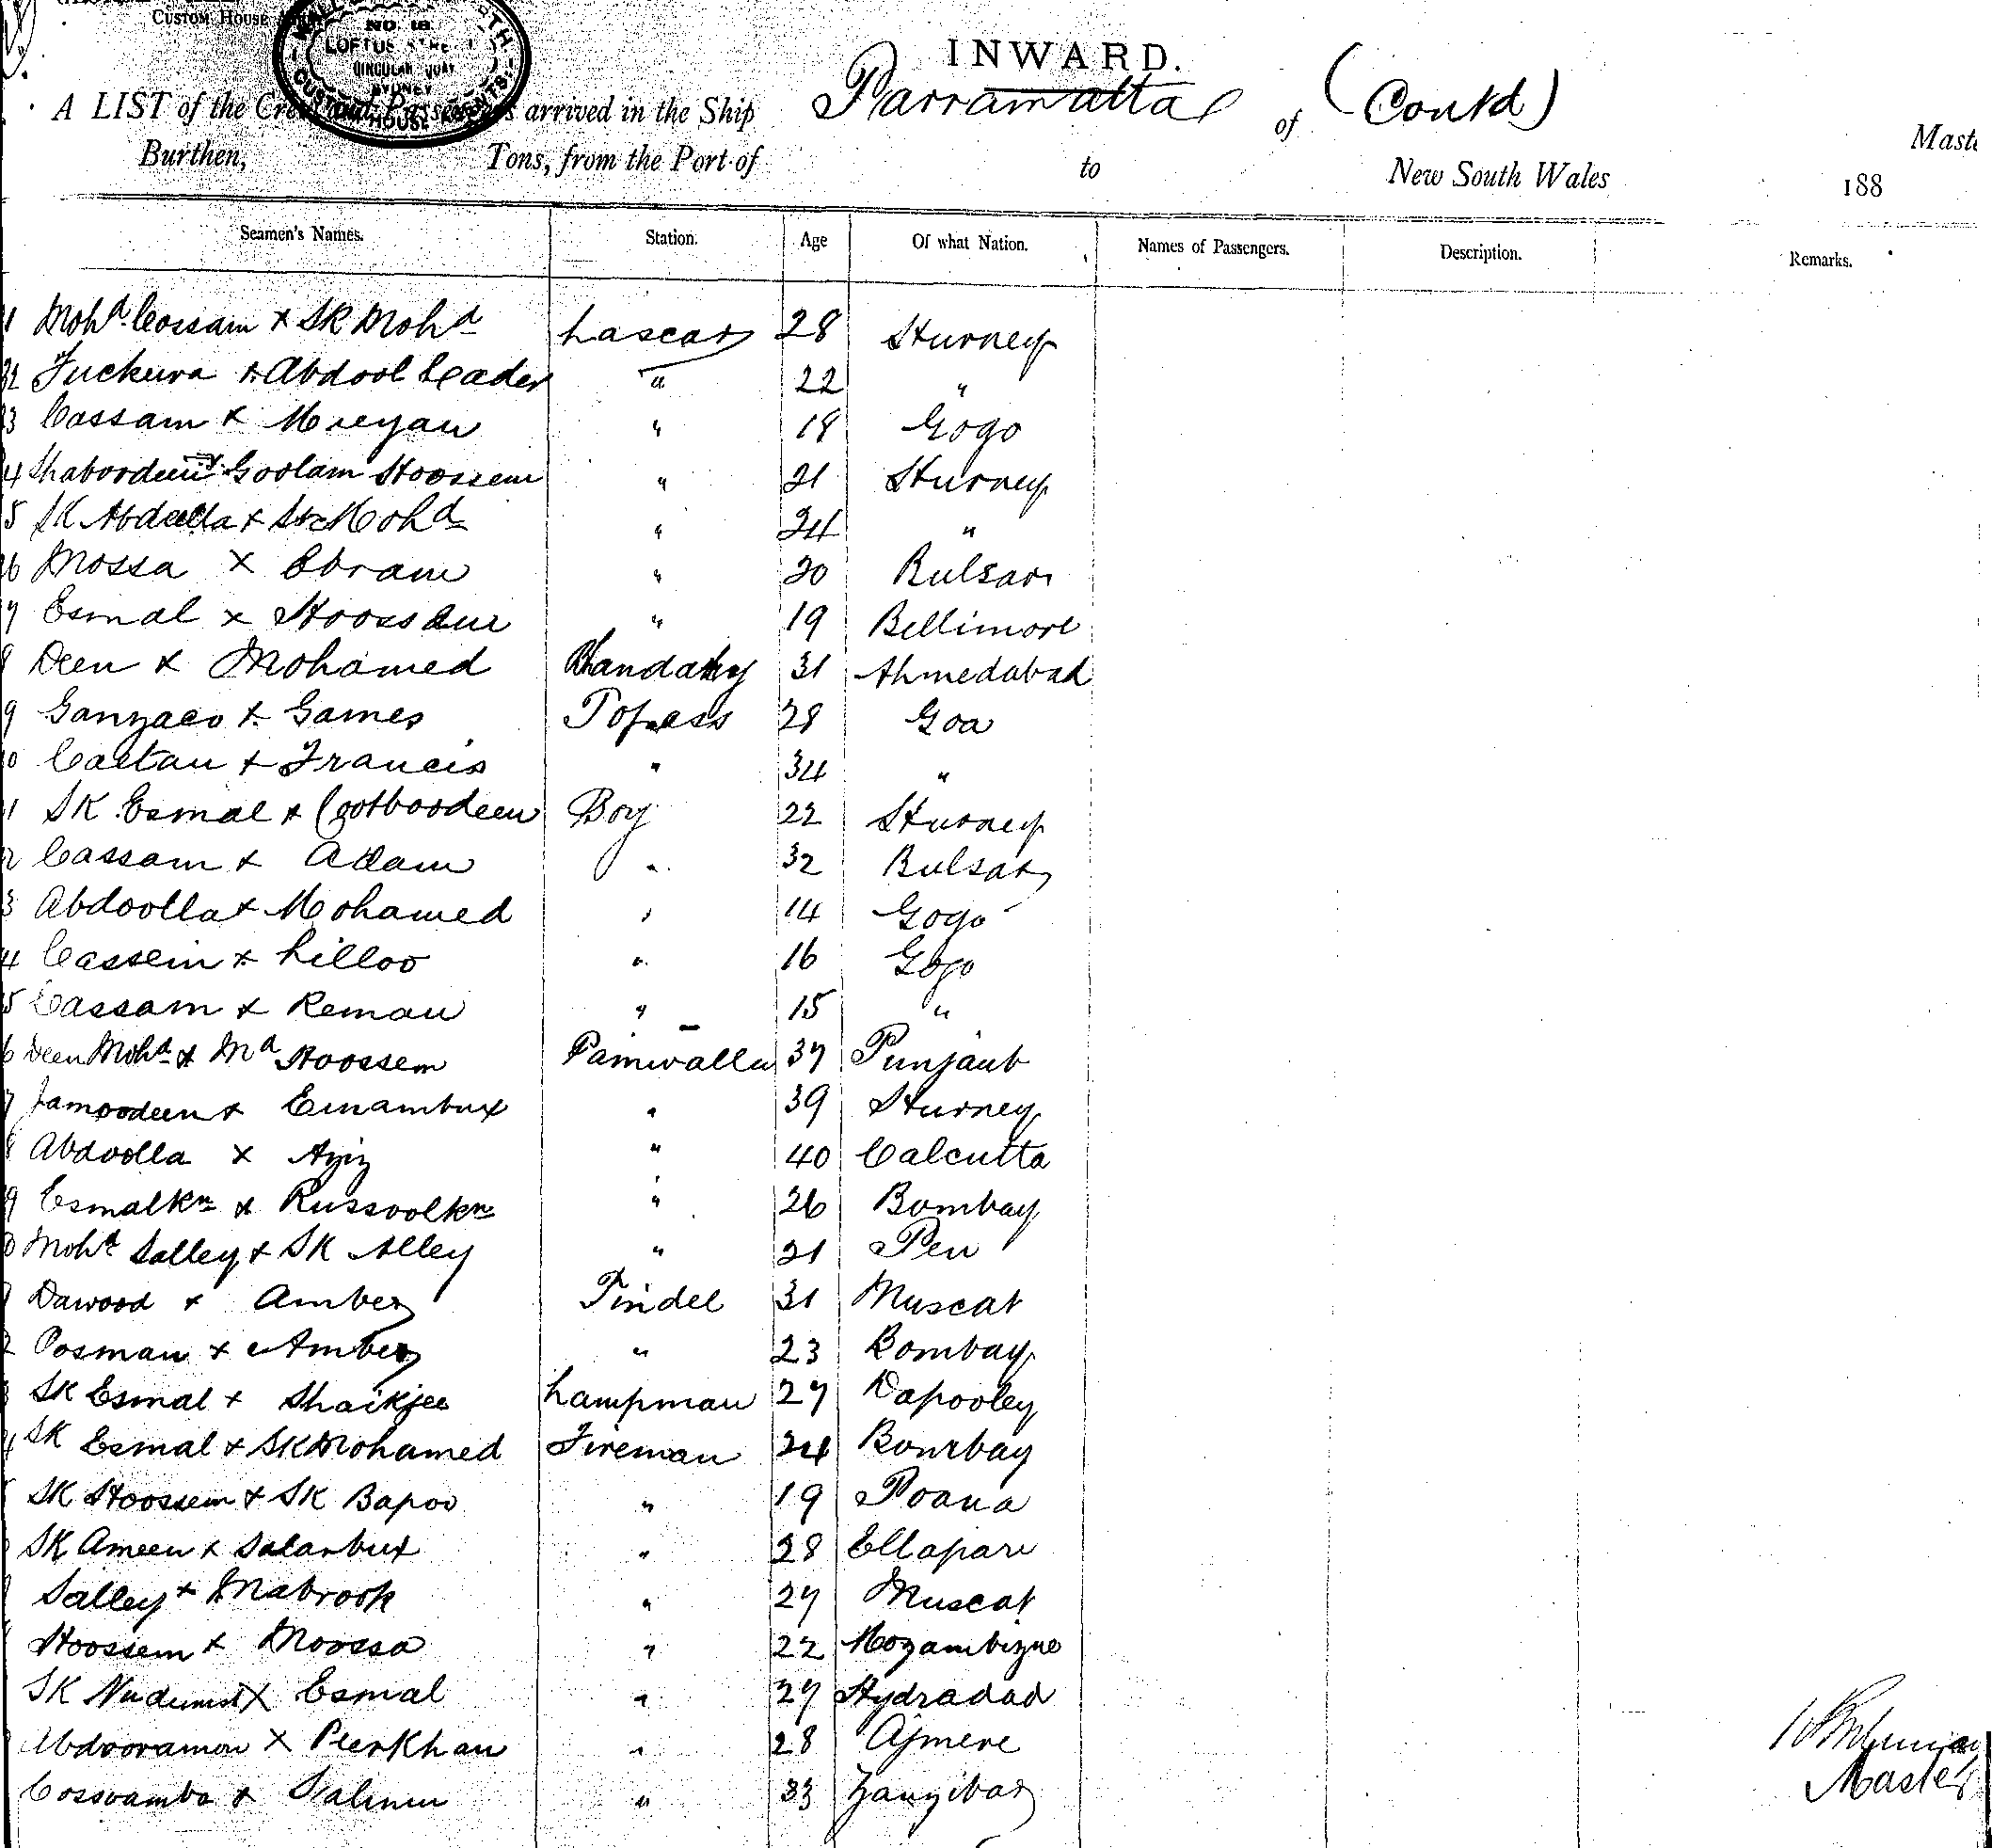 CUSTOM HOUSE
NO 18
LOFTUS STREET
CIRCULAR QUAY
SYDNEY
CUSTOM HOUSE AGENTS
INWARD.
A LIST of the Crew and Passengers arrived in the Ship Parramatta of (Contd)
Master
Burthen, Tons, from the Port of to New South Wales 188
Seamen's Names. Station. Age Of what Nation. Names of Passengers. Description. Remarks.
1 Mohd. Cossam x SK Mohd Lascar 28 Hurney
32 Fuckura x Abdool Cader " 22 "
3 Cassam x Mieyan " 19 Gogo
4 Shabordeen x Goolam Hoossein " 21 Hurney
5 SK Abdulla x SK Mohd " 24 "
36 Mossa x Ebram " 20 Bulsar
7 Esmal x Hoossein " 19 Bellimore
8 Deen x Mohamed Bhandary 31 Ahmedabad
9 Ganzaco x Games Topass 28 Goa
0 Caetan x Francis " 34 "
1 SK Esmal x Cootboodeen Boy 22 Hurney
2 Cassam x Adam " 32 Bulsar
3 Abdoolla x Mohamed " 14 Gogo
4 Cassein x Lilloo " 16 Gogo
5 Cassam x Reman " 15 "
6 Deen Mohd x Md Hoossem Paniwalla 37 Punjaub
7 Jamoodeen x Emambux " 39 Hurney
8 Abdoolla x Aziz " 40 Calcutta
9 Esmalkn x Russoolkn " 26 Bombay
0 Mohd Salley x SK Alley " 21 Pen
Dawood x Amber Tindel 31 Muscat
2 Oosman x Amber " 23 Bombay
3 SK Esmal x Shaikjee Lampman 27 Dapooley
4 SK Esmal x SK Mohamed Fireman 24 Bombay
SK Hoossem x SK Bapoo " 19 Poona
SK Ameen x Salarbux " 28 Ellapare
Salley x Mabrook " 27 Muscat
Hoossem x Moossa " 22 Mozambique
SK x Esmal " 27 Hydradad
Abdooramon x Peerkhan " 28 Ajmere
Cossoamba x Salmin " 33 Zanzibar
Master